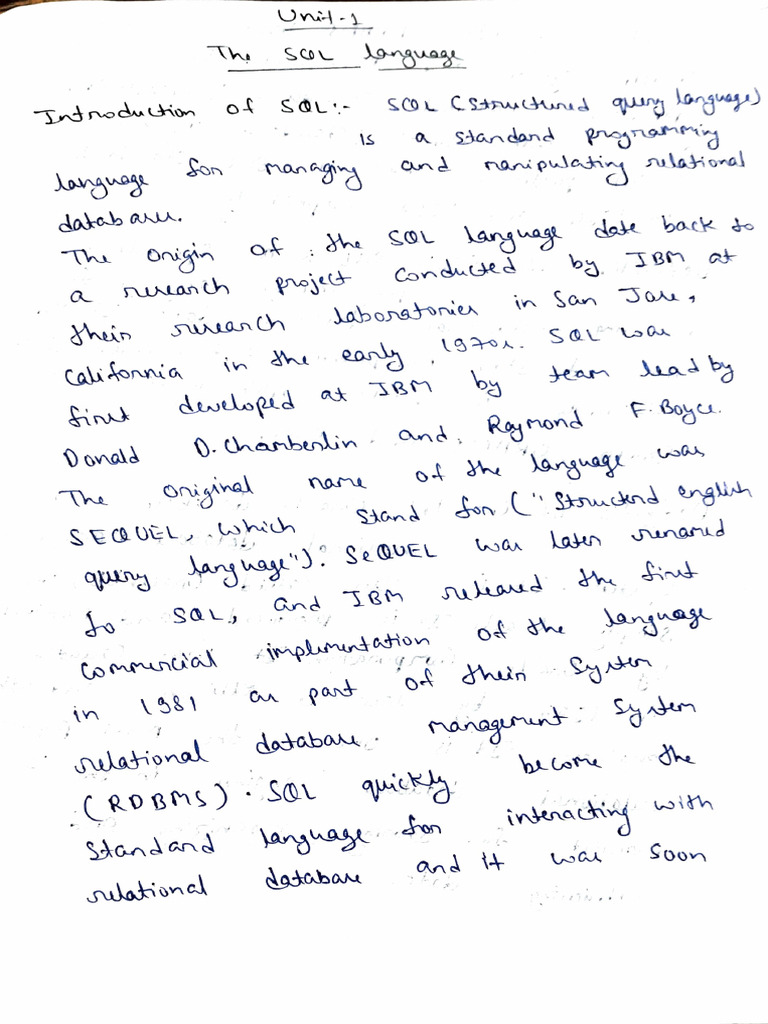 Unit-1
The SQL language
Introduction of SQL:- SQL (Structured query language)
is a standard programming
language for managing and manipulating relational
database.
The origin of the SQL language date back to
a research project conducted by IBM at
their research laboratories in San Jose,
California in the early 1970s. SQL was
first developed at IBM by team lead by
Donald D. Chamberlin and Raymond F. Boyce.
The original name of the language was
SEQUEL, which stand for ("Structerd english
query language"). SeQUEL was later renamed
to SQL, and IBM released the first
commercial implementation of the language
in 1981 as part of their System
relational database management System
(RDBMS). SQL quickly become the
Standard language for interacting with
relational database and it was soon